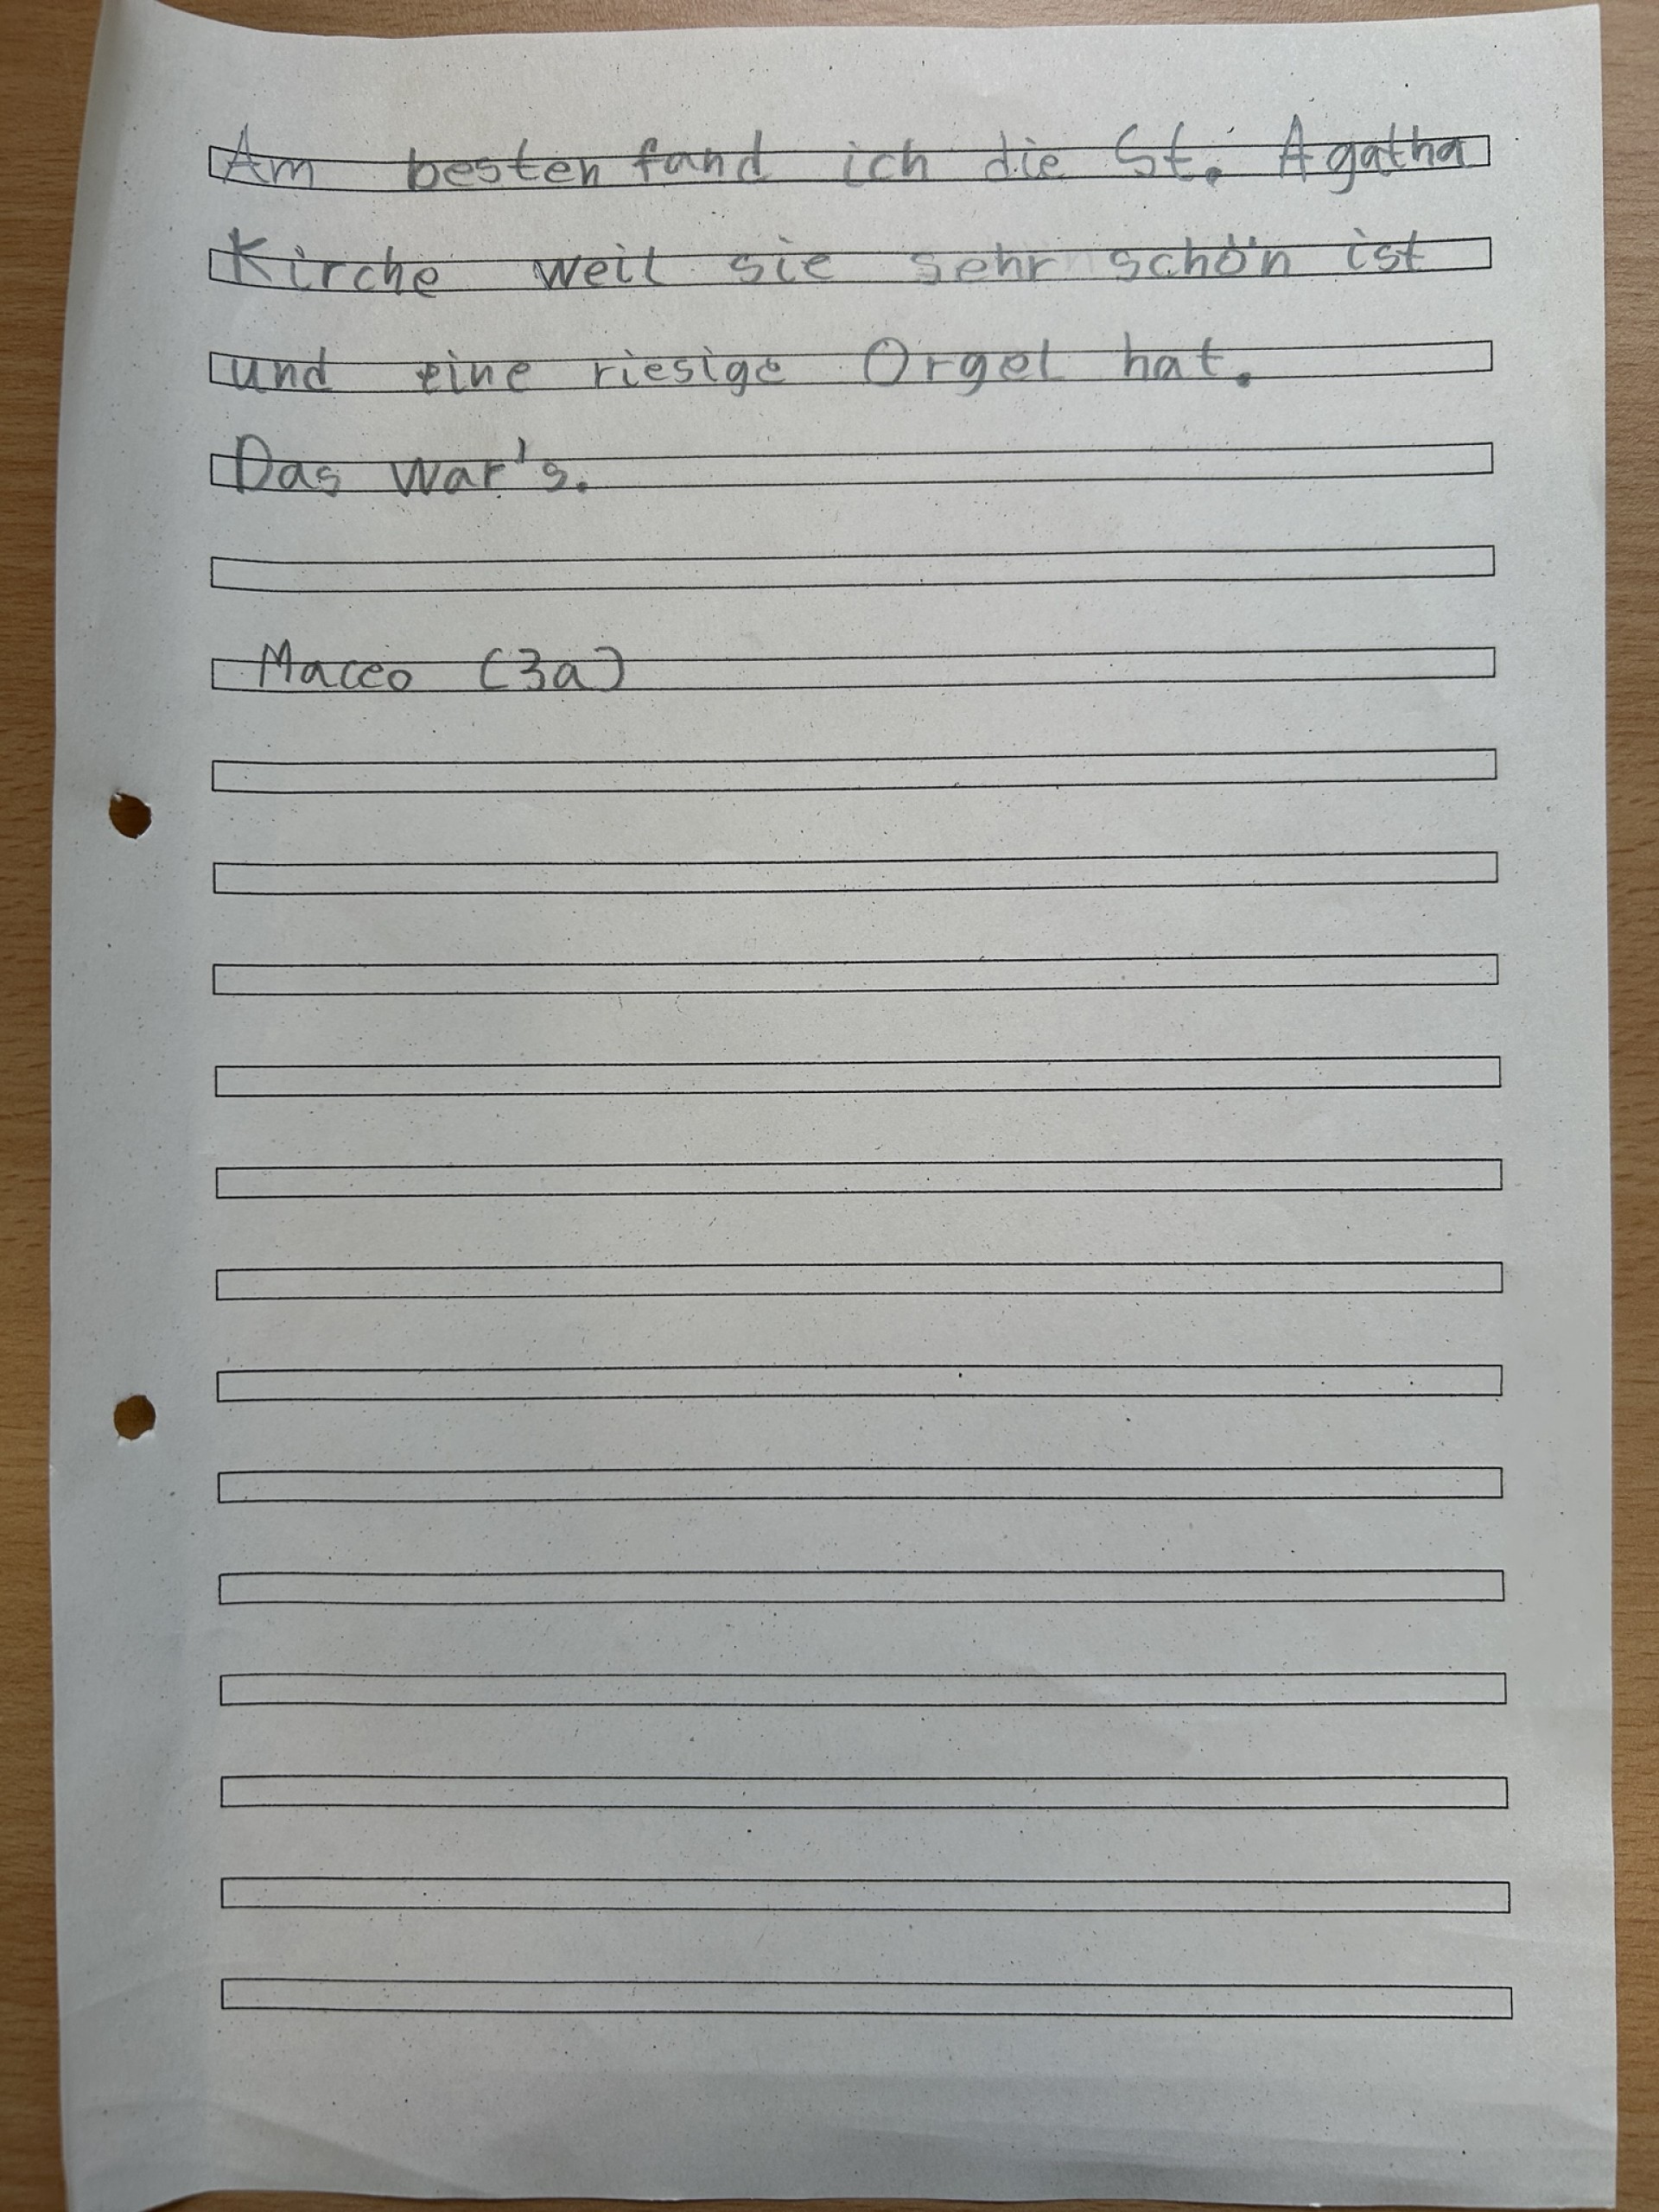 Am besten fand ich die St. Agatha
Kirche weil sie sehr schön ist
und eine riesige Orgel hat.
Das war's.
Maceo (3a)